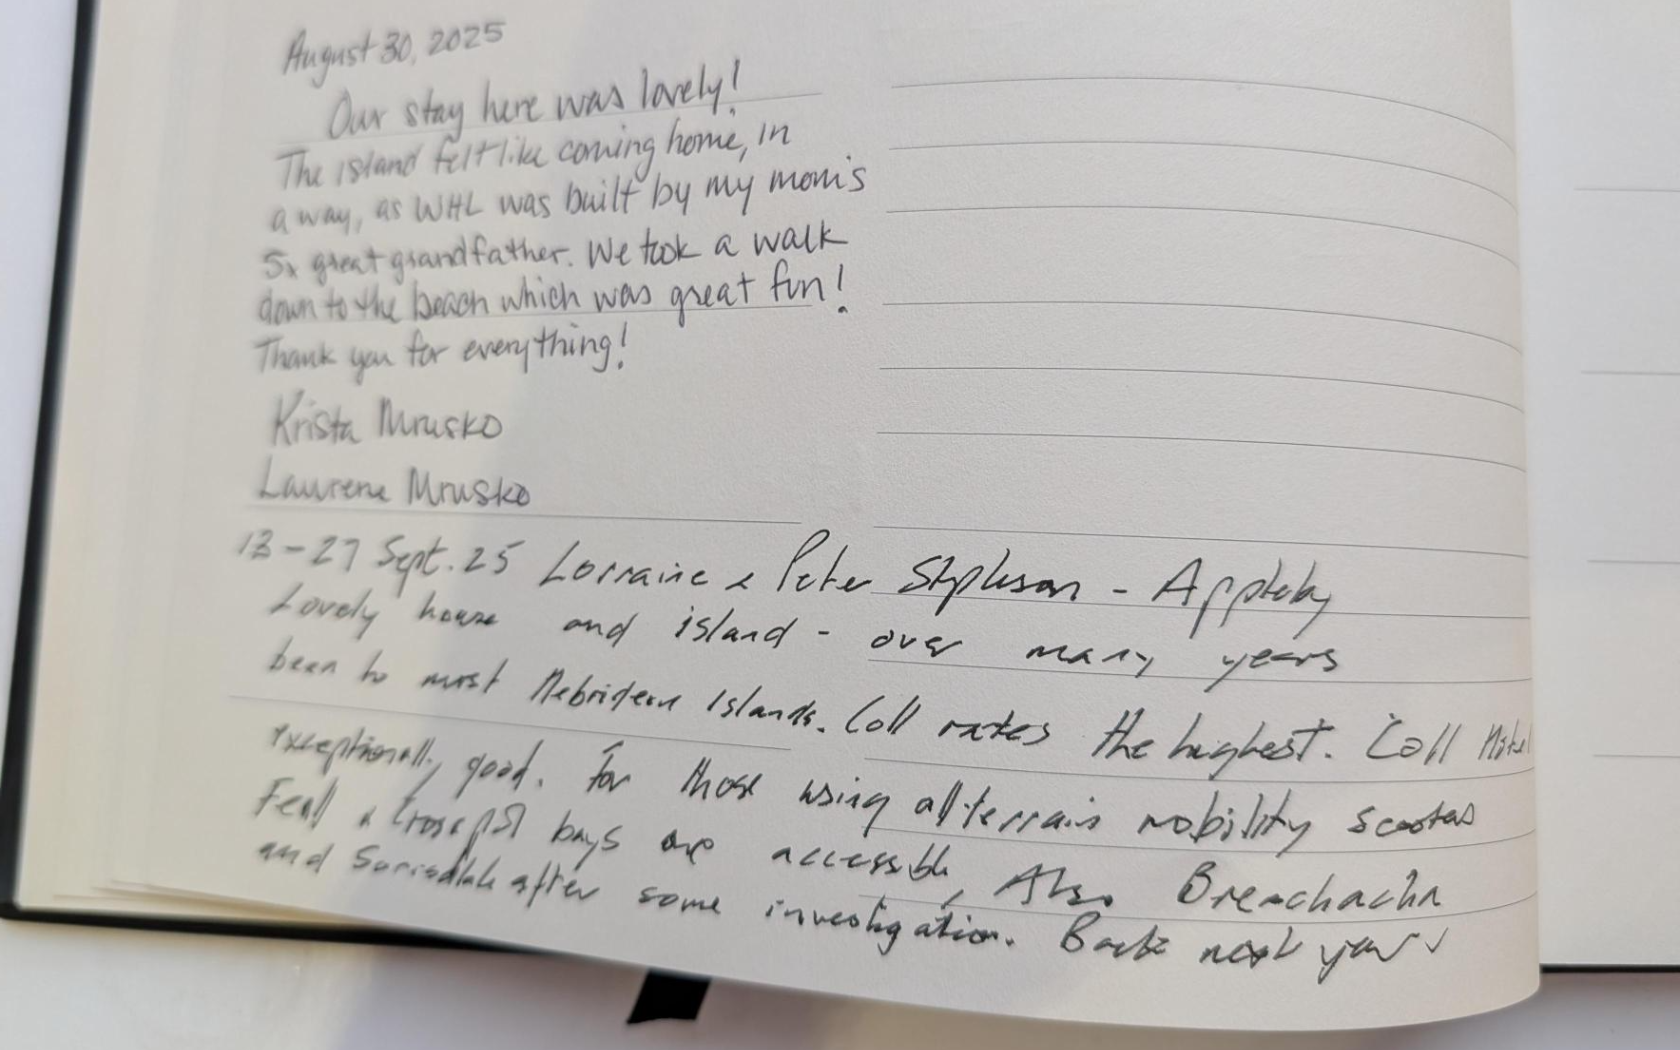 August 30, 2025
Our stay here was lovely!
The island felt like coming home, in
a way, as WHL was built by my mom's
5x great grandfather. We took a walk
down to the beach which was great fun!
Thank you for everything!
Krista Mrusko
Laurene Mrusko
13-27 Sept. 25 Lorraine & Peter Stephenson - Appleby
Lovely house and island - over many years
been to most Hebridean Islands. Coll rates the highest. Coll Hotel
exceptionally good. For those using all terrain mobility scooters
Feall & Crossapol bays are accessible, Also Breachacha
and Sorisdale after some investigation. Back next year ✓